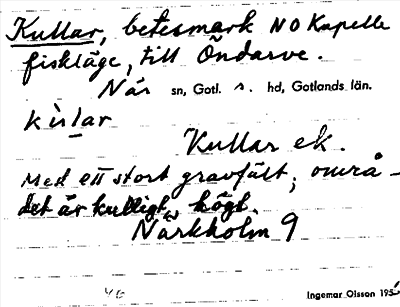 Kullar, betesmark NO Kapelle
fiskläge, till Öndarve.
När sn, Gotl. s. hd, Gotlands län.
Kullar ek.
Med ett stort gravfält, områ-
det är kulligt, högt.
Närkholm 9
Ingemar Olsson 195